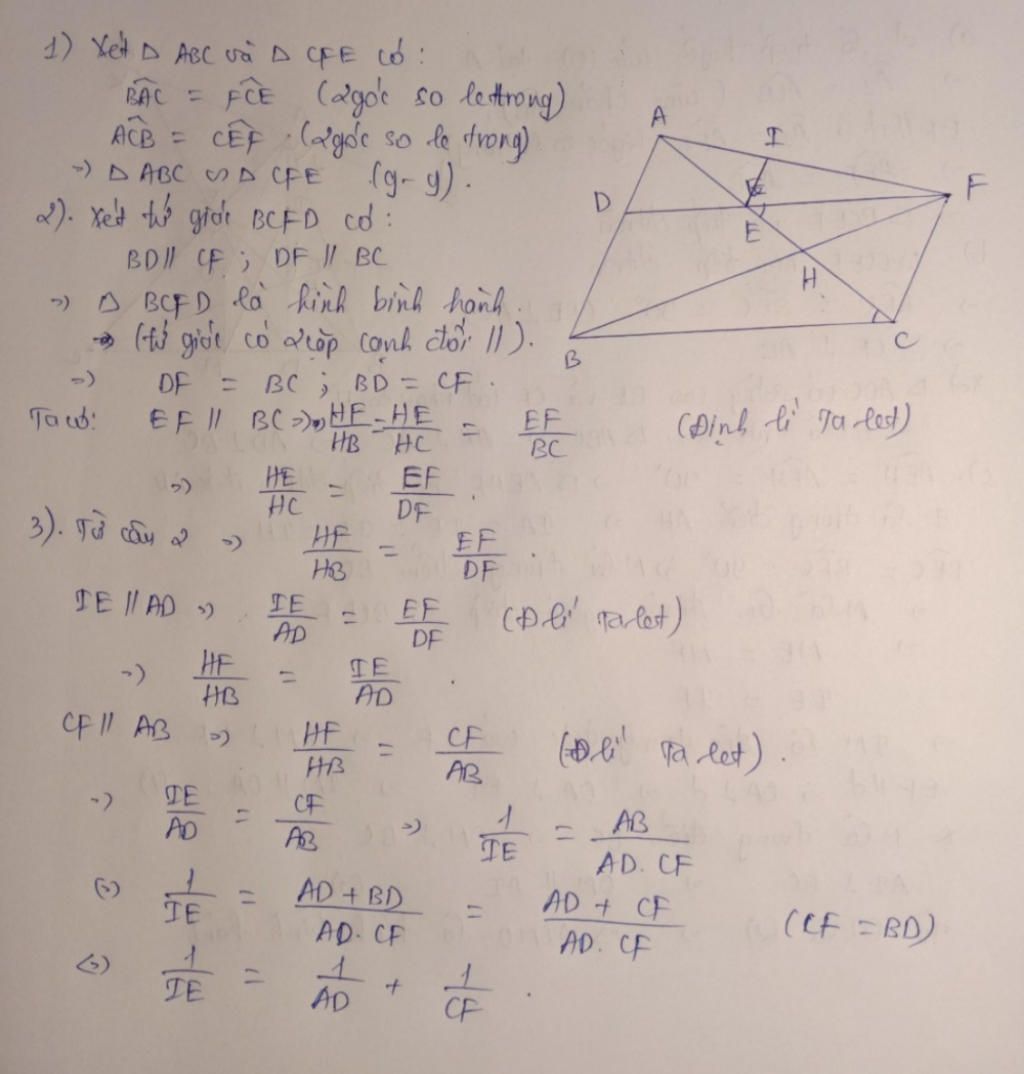 1) Xét Δ ABC và Δ CFE có:
B̂AC = F̂CE (2 góc so le trong)
ÂCB = ĈEF (2 góc so le trong)
=> Δ ABC ∽ Δ CFE (g-g).
2). Xét tứ giác BCFD có:
BD // CF ; DF // BC
=> Δ BCFD là hình bình hành.
(tứ giác có 2 cặp cạnh đối //).
=> DF = BC ; BD = CF.
Ta có: EF // BC => HF/HB = HE/HC = EF/BC (Định lí Ta let)
=> HE/HC = EF/DF.
3). Từ câu 2 => HF/HB = EF/DF.
IE // AD => IE/AD = EF/DF (Đ lí Ta let)
=> HF/HB = IE/AD.
CF // AB => HF/HB = CF/AB (Đ lí Ta let).
=> IE/AD = CF/AB => 1/IE = AB/AD.CF
<=> 1/IE = AD + BD/AD.CF = AD + CF/AD.CF (CF = BD)
<=> 1/IE = 1/AD + 1/CF.
A
I
F
D
E
H
B
C